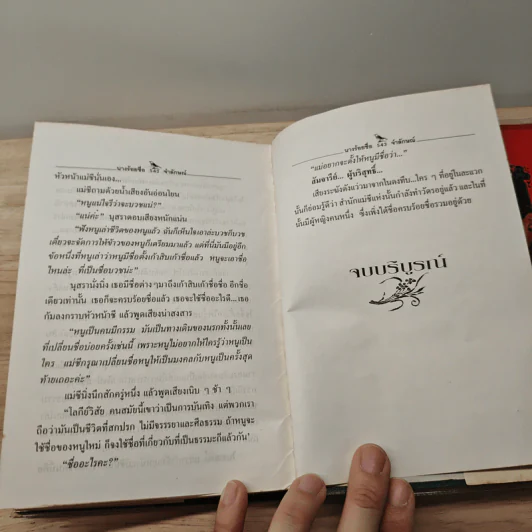 นางร้อยชื่อ 342 จำลักษณ์
หัวหน้าแม่ชีนั่นเอง...
แม่ชีถามด้วยน้ำเสียงอันอ่อนโยน
“หนูแน่ใจรึว่าจะบวชแน่?”
“แน่ค่ะ” นุสราตอบเสียงหนักแน่น
“ฟังหนูเล่าชีวิตของหนูแล้ว ฉันก็เห็นใจเอาล่ะบวชก็บวช
เดี๋ยวจะจัดการให้ชีขาวของหนูก็เตรียมมาแล้ว แต่ที่นี่มันมีอยู่อีก
ข้อหนึ่งที่หนูเล่าว่าหนูมีชื่อตั้งเก้าสิบเก้าชื่อแล้ว หนูจะเอาชื่อ
ไหนล่ะ ที่เป็นชื่อบวชน่ะ”
นุสรานั่งนิ่ง เธอมีชื่อต่าง ๆ มาถึงเก้าสิบเก้าชื่อ อีกชื่อ
เดียวเท่านั้น เธอก็จะครบร้อยชื่อแล้ว เธอจะใช้ชื่ออะไรดี...เธอ
ก้มลงกราบหัวหน้าชี แล้วพูดเสียงน่าสงสาร
“หนูเป็นคนมีกรรม มันเป็นทางเดินของนรกทั้งนั้นเลย
ที่เปลี่ยนชื่อบ่อยครั้งเช่นนี้ เพราะหนูไม่อยากให้ใครรู้ว่าหนูเป็น
ใคร แม่ชีกรุณาเปลี่ยนชื่อหนูให้เป็นมงคลกับหนูเป็นครั้งสุด
ท้ายเถอะค่ะ”
แม่ชีนิ่งนึกสักครู่หนึ่ง แล้วพูดเสียงเนิบ ๆ ช้า ๆ
“โลกีย์วิสัย คนสมัยนี้เขาว่าเป็นการบันเทิง แต่พวกเรา
ถือว่ามันเป็นชีวิตที่สกปรก ไม่มีจรรยาและศีลธรรม ถ้าหนูจะ
ใช้ชื่อของหนูใหม่ ก็จงใช้ชื่อที่เกี่ยวกับที่เป็นธรรมะก็แล้วกัน”
“ชื่ออะไรคะ?”
นางร้อยชื่อ 343 จำลักษณ์
“แม่อยากจะตั้งให้หนูมีชื่อว่า...”
ลันจารีย์... ผู้บริสุทธิ์...
เสียงระฆังดังแว่วมาจากในดงทึบ...ใคร ๆ ที่อยู่ในละแวก
นั้นก็ย่อมรู้ดีว่า สำนักแม่ชีแห่งนั้นกำลังทำวัตรอยู่แล้ว และในที่
นั้นมีผู้หญิงคนหนึ่ง ซึ่งเพิ่งได้ชื่อครบร้อยชื่อรวมอยู่ด้วย
จบบริบูรณ์